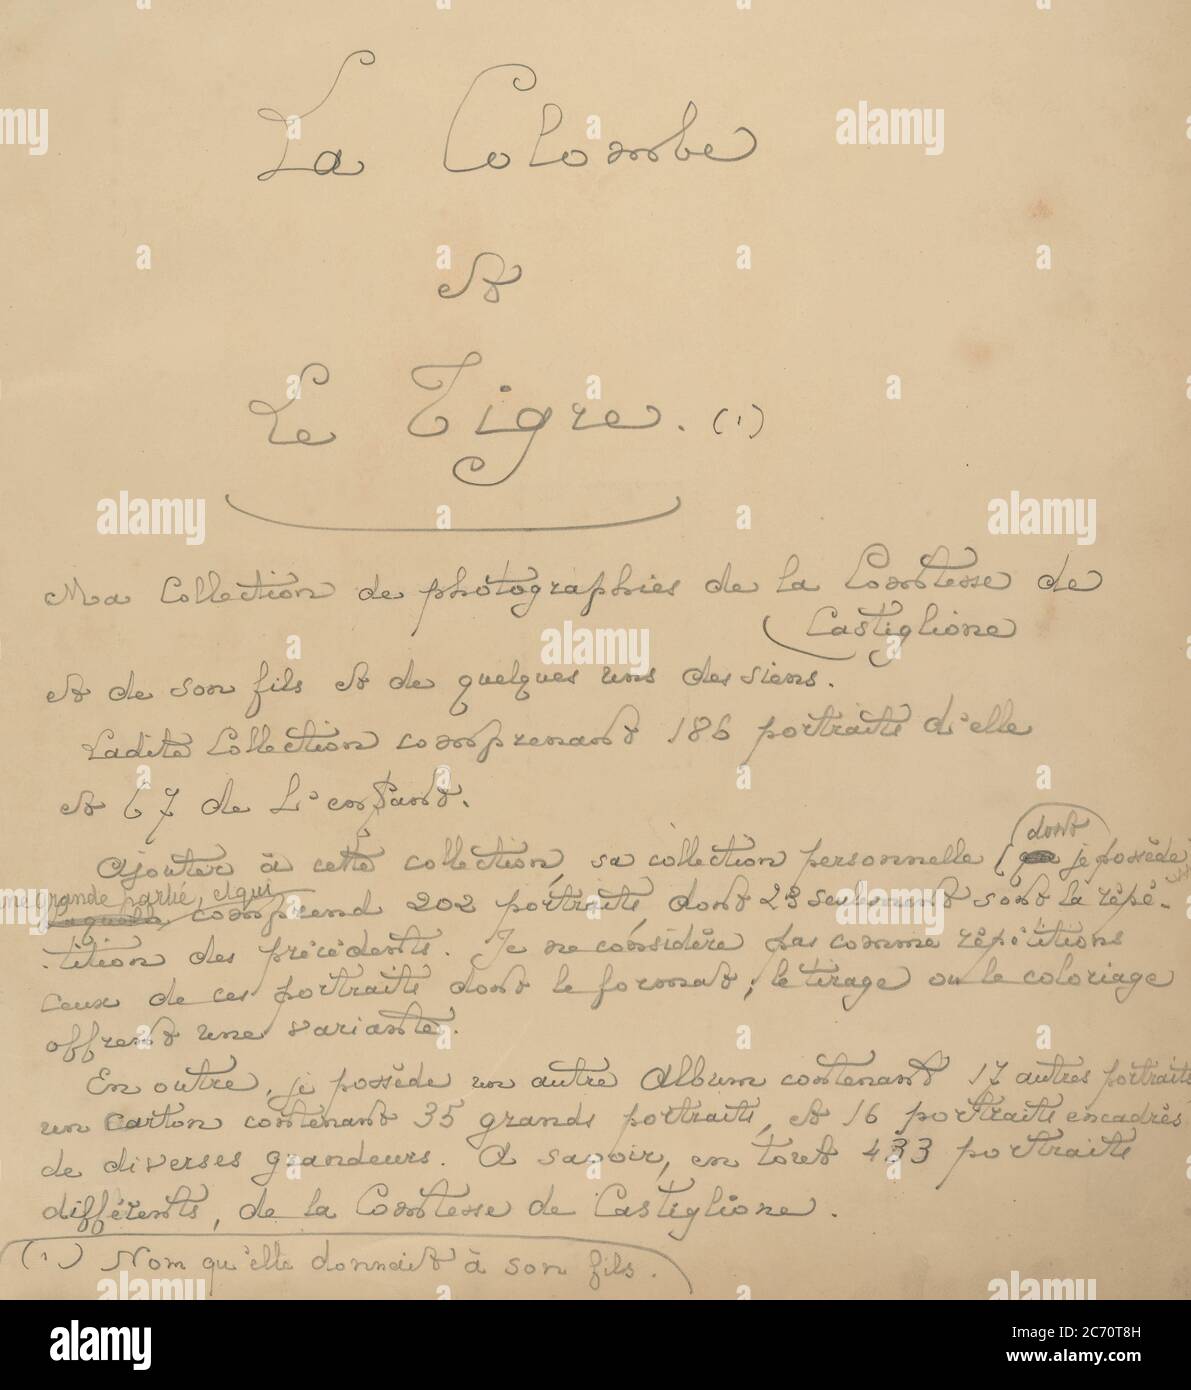 La Colombe
et
Le Tigre. (1)
Ma Collection de photographies de la Comtesse de
Castiglione
et de son fils et de quelques uns des siens.
Ladite Collection comprenant 186 portraits d'elle
et 67 de L'enfant.
dont
Ajouter à cette collection, sa collection personnelle ( je possède
grande partie, et qui
comprend 202 portraits, dont 23 seulement sont la répé-
-tition des précédents. Je ne considère pas comme répétitions
ceux de ces portraits dont le format, le tirage ou le coloriage
offrent une variante.
En outre, je possède un autre Album contenant 17 autres portraits
un carton contenant 35 grands portraits, et 16 portraits encadrés
de diverses grandeurs. A savoir, en tout 433 portraits
différents, de la Comtesse de Castiglione.
(1) Nom qu'elle donnait à son fils.
alamy
Image ID: 2C70T8H
www.alamy.com